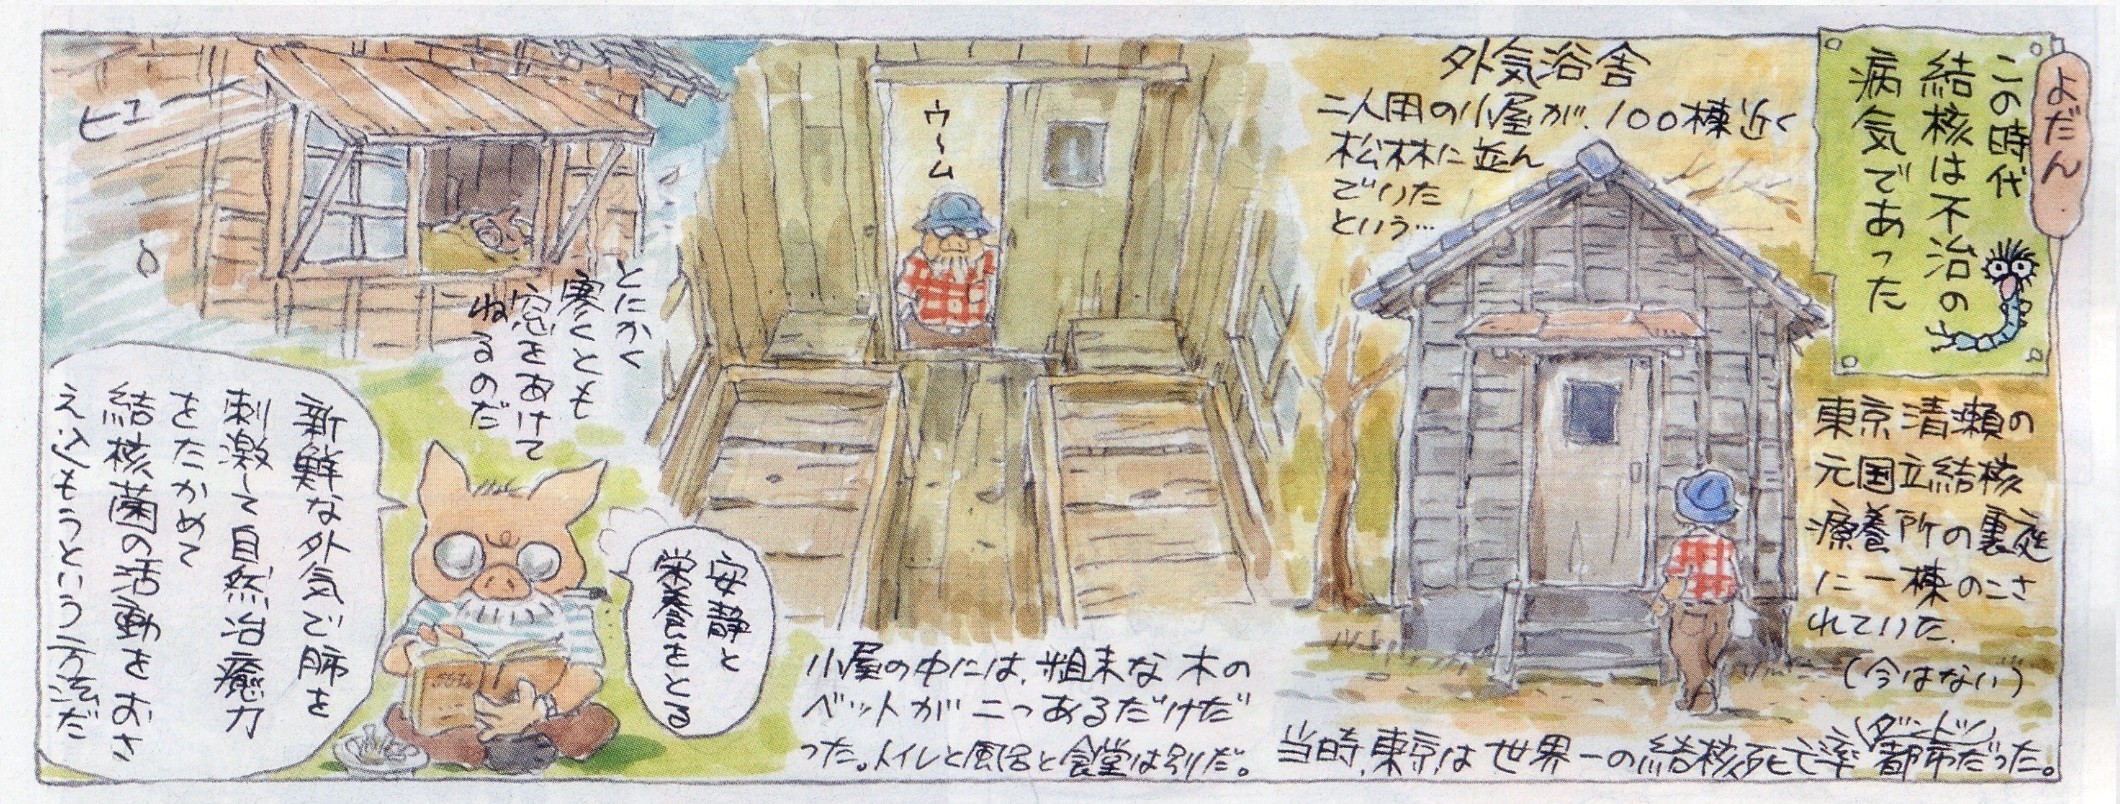 よだん
この時代
結核は不治の
病気であった
外気浴舎
二人用の小屋が、100棟近く
松林に並ん
でいた
という…
東京清瀬の
元国立結核
療養所の裏庭
に一棟のこさ
れていた。
(今はない)
当時、東京は世界一の結核死亡率(ダントツ)都市だった。
ウーム
小屋の中には、粗末な木の
ベットが二つあるだけだ
った。トイレと風呂と食堂は別だ。
ヒュー
とにかく
寒くとも
窓をあけて
ねるのだ
安静と
栄養をとる
新鮮な外気で肺を
刺激して自然治癒力
をたかめて
結核菌の活動をおさ
えこもうという方法だ